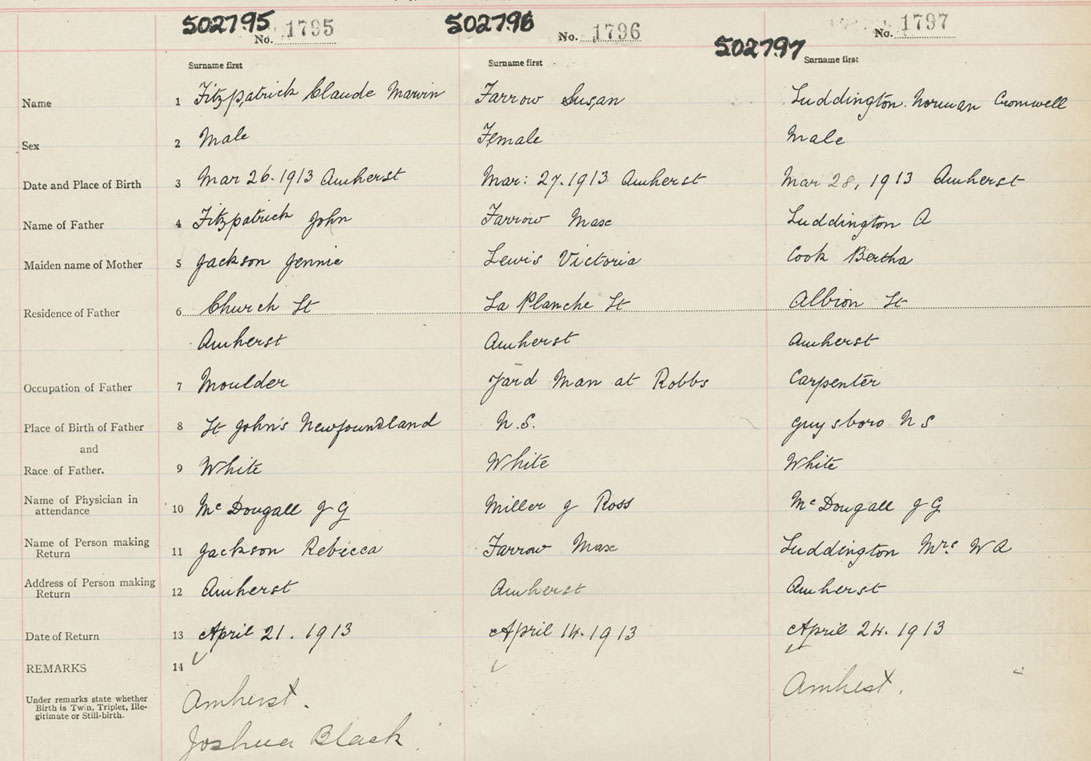 502795 No. 1795 502796 No. 1796 502797 No. 1797
Surname first Surname first Surname first
Name 1 Fitzpatrick Claude Marvin Farrow Susan Luddington. Norman Cromwell
Sex 2 Male Female Male
Date and Place of Birth 3 Mar 26. 1913 Amherst Mar: 27. 1913 Amherst Mar 28, 1913 Amherst
Name of Father 4 Fitzpatrick John Farrow Max Luddington A
Maiden name of Mother 5 Jackson Jennie Lewis Victoria Cook Bertha
Residence of Father 6 Church St La Planche St Albion St
Amherst Amherst Amherst
Occupation of Father 7 Moulder Yard Man at Robbs Carpenter
Place of Birth of Father 8 St John's Newfoundland N.S. Guysboro N S
and
Race of Father. 9 White White White
Name of Physician in
attendance 10 Mc Dougall J G Miller J Ross Mc Dougall J G
Name of Person making
Return 11 Jackson Rebicca Farrow Max Luddington Mrs W A
Address of Person making
Return 12 Amherst Amherst Amherst
Date of Return 13 April 21. 1913 April 14. 1913 April 24. 1913
REMARKS 14
Under remarks state whether
Birth is Twin, Triplet, Ille-
gitimate or Still-birth.
Amherst. Amhest.
Joshua Black.